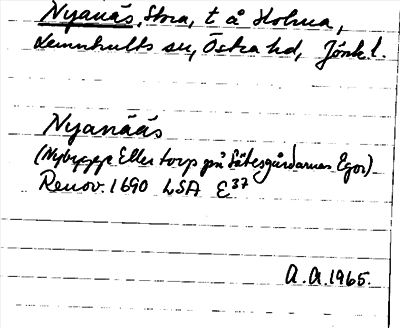 Nyanäs, Stora, t å Holma,
Lemnhults sn, Östra hd, Jönk l.
Nyanääs
(Nybygge Eller torp på Sätesgårdarnas Egor)
Renov. 1690 LSA E37
A.A. 1965.